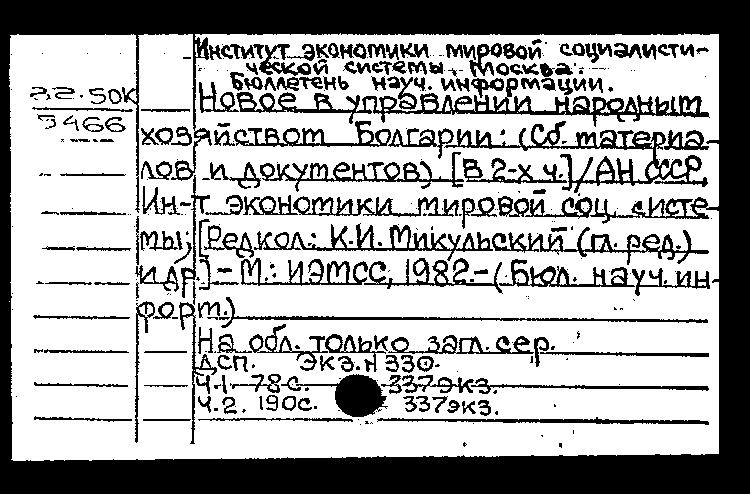 Институт экономики мировой социалисти-
ческой системы. Москва.
Бюллетень науч. информации.
32.50К
5466
Новое в управлении народным
хозяйством Болгарии: (Сб. материа-
лов и документов). [В 2-х ч.]/АН СССР,
Ин-т экономики мировой соц. систе-
мы; [Редкол.: К.И. Микульский (гл. ред.)
и др.] - М.: ИЭМСС, 1982.-(Бюл. науч. ин-
форм.)
На обл. только загл. сер.
ДСП. Экз. N 330.
Ч.1. 78 с. 337 экз.
Ч.2. 190с. 337экз.